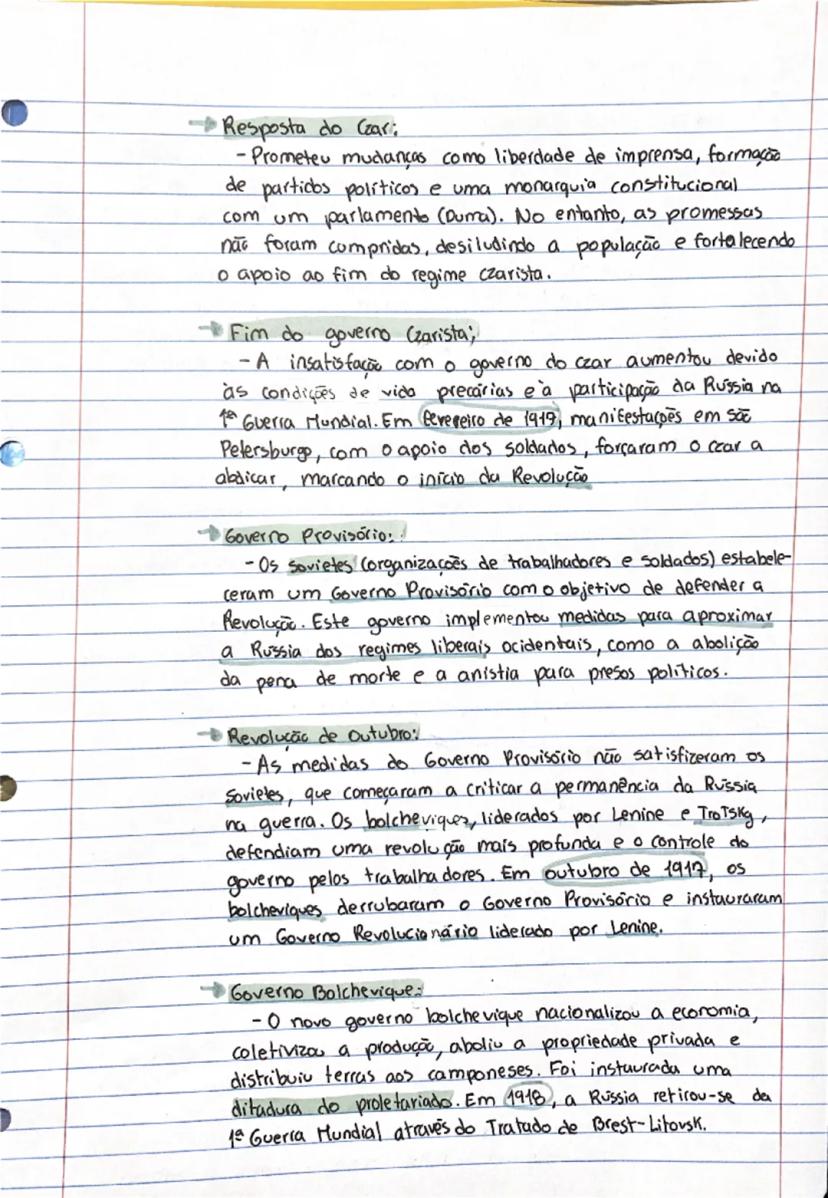 → Resposta do Czar:
- Prometeu mudanças como liberdade de imprensa, formação
de partidos políticos e uma monarquia constitucional
com um parlamento (Duma). No entanto, as promessas
não foram cumpridas, desiludindo a população e fortalecendo
o apoio ao fim do regime czarista.
→ Fim do governo Czarista;
- A insatisfação com o governo do czar aumentou devido
às condições de vida precárias e à participação da Rússia na
1ª Guerra Mundial. Em fevereiro de 1917, manifestações em São
Petersburgo, com o apoio dos soldados, forçaram o czar a
abdicar, marcando o início da Revolução
→ Governo Provisório:
- Os sovietes (organizações de trabalhadores e soldados) estabele-
ceram um Governo Provisório com o objetivo de defender a
Revolução. Este governo implementou medidas para aproximar
a Rússia dos regimes liberais ocidentais, como a abolição
da pena de morte e a anistia para presos políticos.
→ Revolução de Outubro:
- As medidas do Governo Provisório não satisfizeram os
sovietes, que começaram a criticar a permanência da Rússia
na guerra. Os bolcheviques, liderados por Lenine e Trotsky,
defendiam uma revolução mais profunda e o controle do
governo pelos trabalhadores. Em outubro de 1917, os
bolcheviques derrubaram o Governo Provisório e instauraram
um Governo Revolucionário liderado por Lenine.
→ Governo Bolchevique:
- O novo governo bolchevique nacionalizou a economia,
coletivizou a produção, aboliu a propriedade privada e
distribuiu terras aos camponeses. Foi instaurada uma
ditadura do proletariado. Em 1918, a Rússia retirou-se da
1ª Guerra Mundial através do Tratado de Brest-Litovsk.